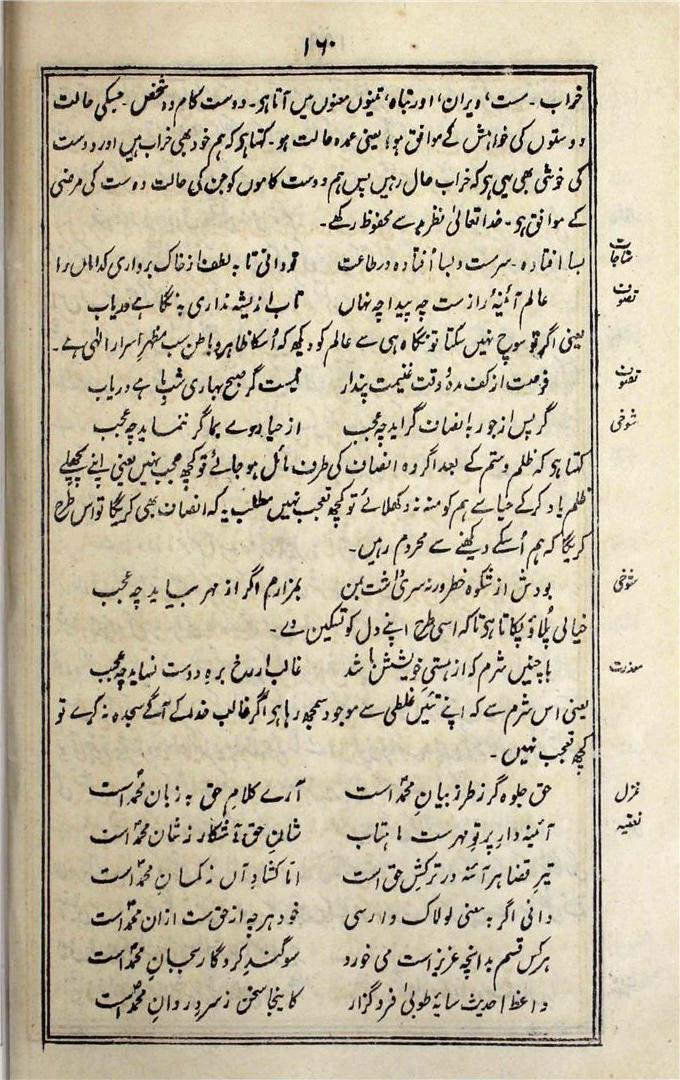 ۱۶۰
خراب ۔ مست، ویران، اور تباہ، تینوں معنوں میں آتا ہو۔ دوست کام وہ شخص ۔ جسکی حالت
دوستوں کی خواہش کے موافق ہو؛ یعنی عمدہ حالت ہو۔ کہتا ہو کہ ہم خود بھی خراب ہیں اور دوست
کی خوشی بھی یہی ہو کہ خراب حال رہیں پس ہم دوست کاموں کو جن کی حالت دوست کی مرضی
کے موافق ہو۔ خدا تعالیٰ نظر بد سے محفوظ رکھے۔
مناجات
بسا افتادہ سرمست و بسا افتادہ در طاعت تو دانی تا بہ لطف از خاک برداری کدامان را
تصوف
عالم آئینۂ راز ست چہ پیدا چہ نہاں تاب اندیشہ نداری بہ نگاہے دریاب
یعنی اگر تو سوچ نہیں سکتا تو نگاہ ہی سے عالم کو دیکھ کہ اُسکا ظاہر و باطن سب مظہر اسرار الٰہی ہے۔
تصوف
فرصت از کف مدہ و وقت غنیمت پندار نیست گر صبح بہاری شبِ ماہے دریاب
شوخی
گر پس از جور بہ انصاف گراید چہ عجب از حیا روے بما گر ننماید چہ عجب
کہتا ہو کہ ظلم و ستم کے بعد اگر وہ انصاف کی طرف مائل ہو جائے تو کچھ عجب نہیں یعنی اپنے پچھلے
ظلم یاد کرکے حیا سے ہم کو منہ نہ دکھلائے تو کچھ تعجب نہیں مطلب یہ کہ انصاف بھی کریگا تو اس طرح
کریگا کہ ہم اُسکے دیکھنے سے محروم رہیں۔
شوخی
بودش از شکوہ خطر ورنہ سرے داشت بمن بمزارم اگر از مہر بیاید چہ عجب
خیالی پُلاؤ پکاتا ہو تاکہ اسی طرح اپنے دل کو تسکین دے۔
معذرت
با چنیں شرم کہ از ہستیِ خویشش باشد غالب ار رخ برہ دوست نساید چہ عجب
یعنی اس شرم سے کہ اپنے تئیں غلطی سے موجود سمجھ رہا ہو اگر غالب خدا کے آگے سجدہ نہ کرے تو
کچھ تعجب نہیں۔
غزل
نعتیہ
حق جلوہ گر ز طرز بیانِ محمدؐ است آرے کلامِ حق بہ زبانِ محمدؐ است
آئینہ دارِ پرتوِ مہرست ماہتاب شانِ حق آشکار ز شانِ محمدؐ است
تیرِ قضا ہر آئنہ در ترکشِ حق است اما کشادِ آں ز کمانِ محمدؐ است
دانی اگر بہ معنی لولاک وارسی خود ہرچہ از حق ست ازانِ محمدؐ است
ہر کس قسم بدانچہ عزیز است می خورد سوگندِ کردگار بجانِ محمدؐ است
واعظ حدیثِ سایۂ طوبیٰ فروگزار کاینجا سخن ز سروِ روانِ محمدؐ است